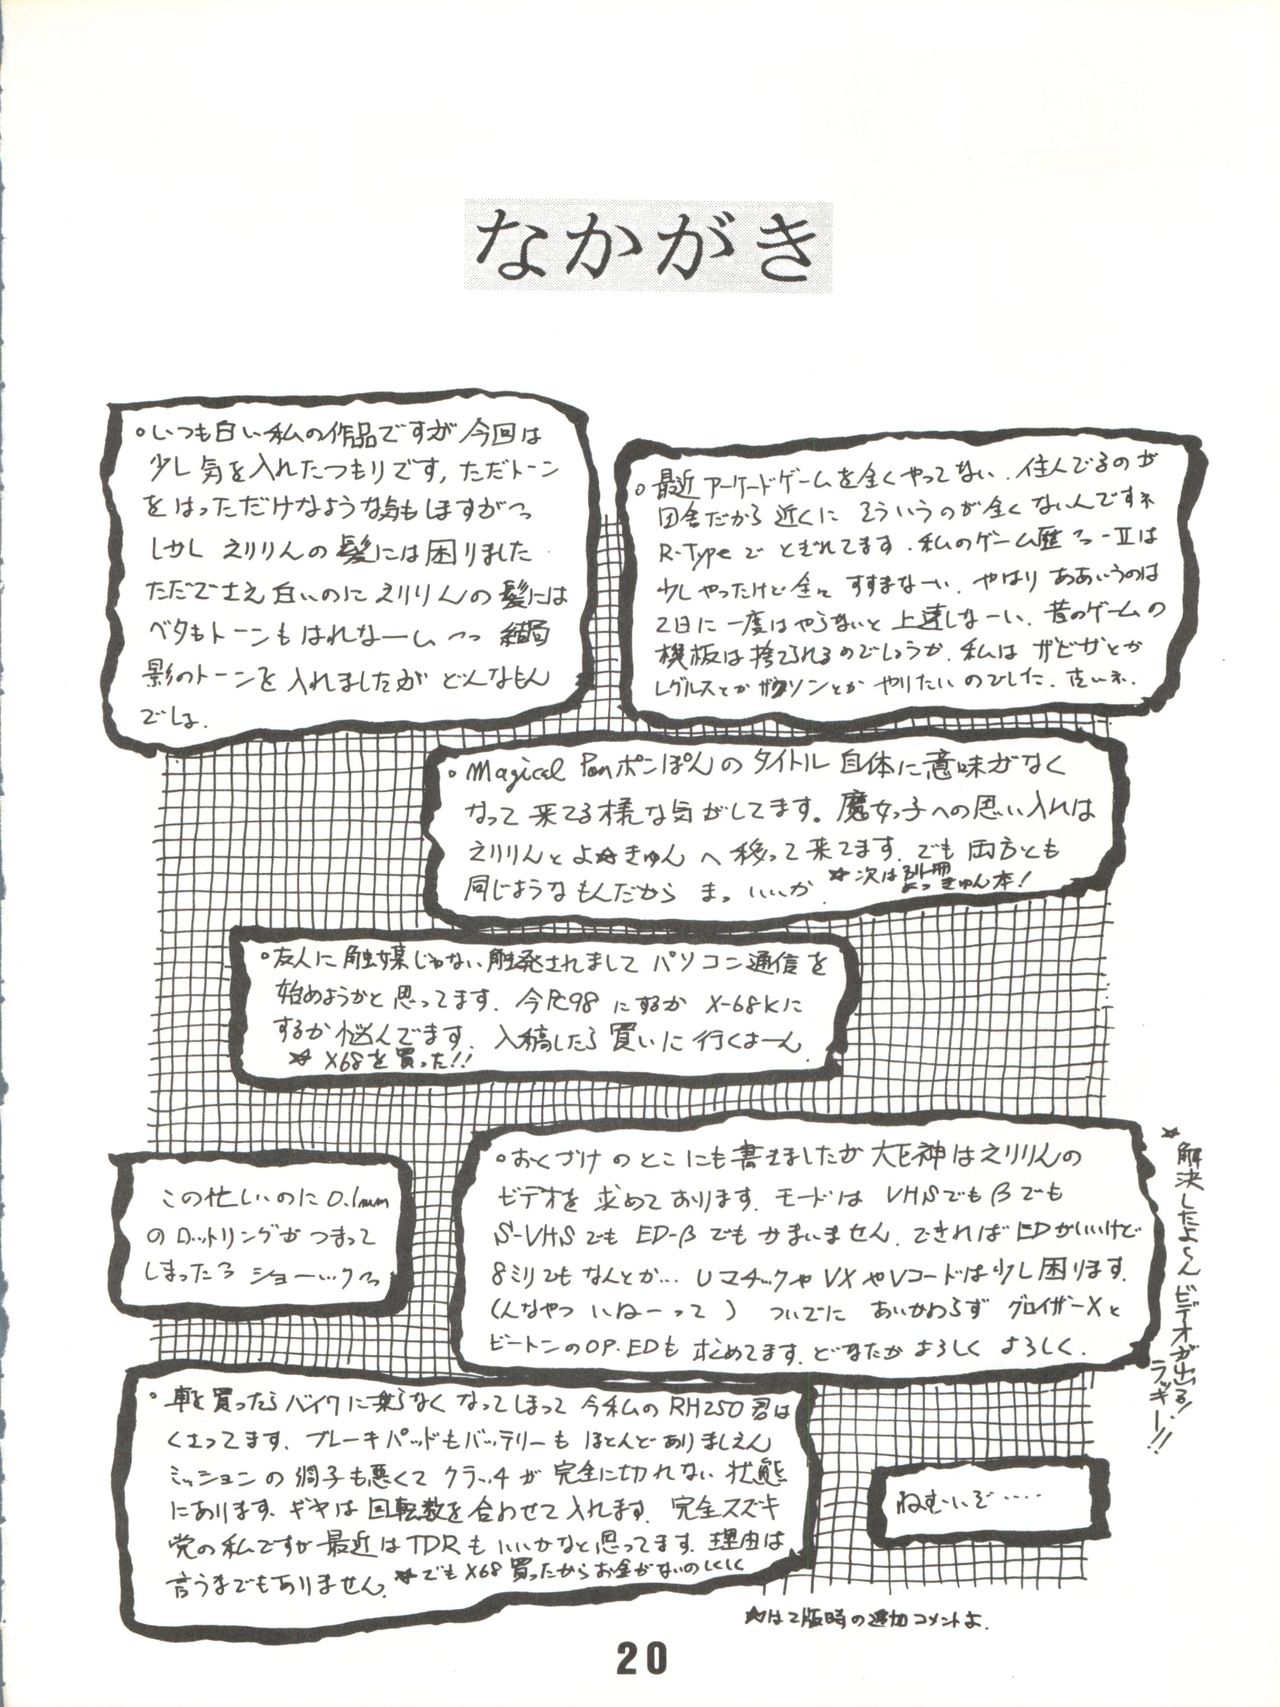 なかがき
○いつも白い私の作品ですが今回は
少し気を入れたつもりです,ただトーン
をはっただけなような気もしますがっっ
しかし えりりんの髪には困りました
ただでさえ白いのに えりりんの髪には
ベタもトーンもはれなーしぃっっ 結局
影のトーンを入れましたが どんなもん
でしょ.
○最近アーケードゲームを全くやってない.住んでるのが
田舎だから近くに そういうのが全くないんですネ
R-Typeで とぎれてます.私のゲーム歴 っっ-Ⅱは
少しやったけど全然すすまなーい.やはり ああいうのは
2日に一度はやらないと上達しなーい.昔のゲームの
機板は捨てられるのでしょうか.私は ザビガとか
レグルスとか ザクソンとか やりたいのでした.古いネ.
○Magical Ponポンぽんのタイトル自体に意味がなく
なって来てる様な気がしてます。魔女っ子への思い入れは
えりりんとよ☆きゅんへ移って来てます.でも両方とも
同じようなもんだから まっ いいか.
☆次は別冊
よっきゅん本!
○友人に触媒じゃない触発されまして パソコン通信を
始めようかと思ってます.今PC98にするか X-68Kに
するか悩んでます.入稿したら買いに行くよーん.
☆X68を買った!!
この忙しいのに0.1mm
のロットリングがつまって
しまったう ショーックっっ
○おくづけのとこにも書きましたが大巨神はえりりんの
ビデオを求めております.モードは VHSでもβでも
S-VHSでも ED-βでもかまいません.できればEDがいいけど
8ミリでもなんとか… UマチックやVXやVコードは少し困ります.
(んなやつ いねーって) ついでに あいかわらず グロイザーXと
ビートンのOP.EDも求めてます.どなたか よろしく よろしく.
☆解決したよ〜ん ビデオが出る!
ラッキー!!
○車を買ったらバイクに乗らなくなってしまって 今私のRH250君は
くさってます.ブレーキパッドもバッテリーも ほとんどありましぇん
ミッションの調子も悪くて クラッチが完全に切れない状態
にあります.ギヤは回転数を合わせて入れます.完全スズキ
党の私ですが最近はTDRもいいかなと思ってます.理由は
言うまでもありません.
☆でもX68買ったからお金がないのしくしく
ねむいぞ……
☆は2版時の追加コメントよ.
20